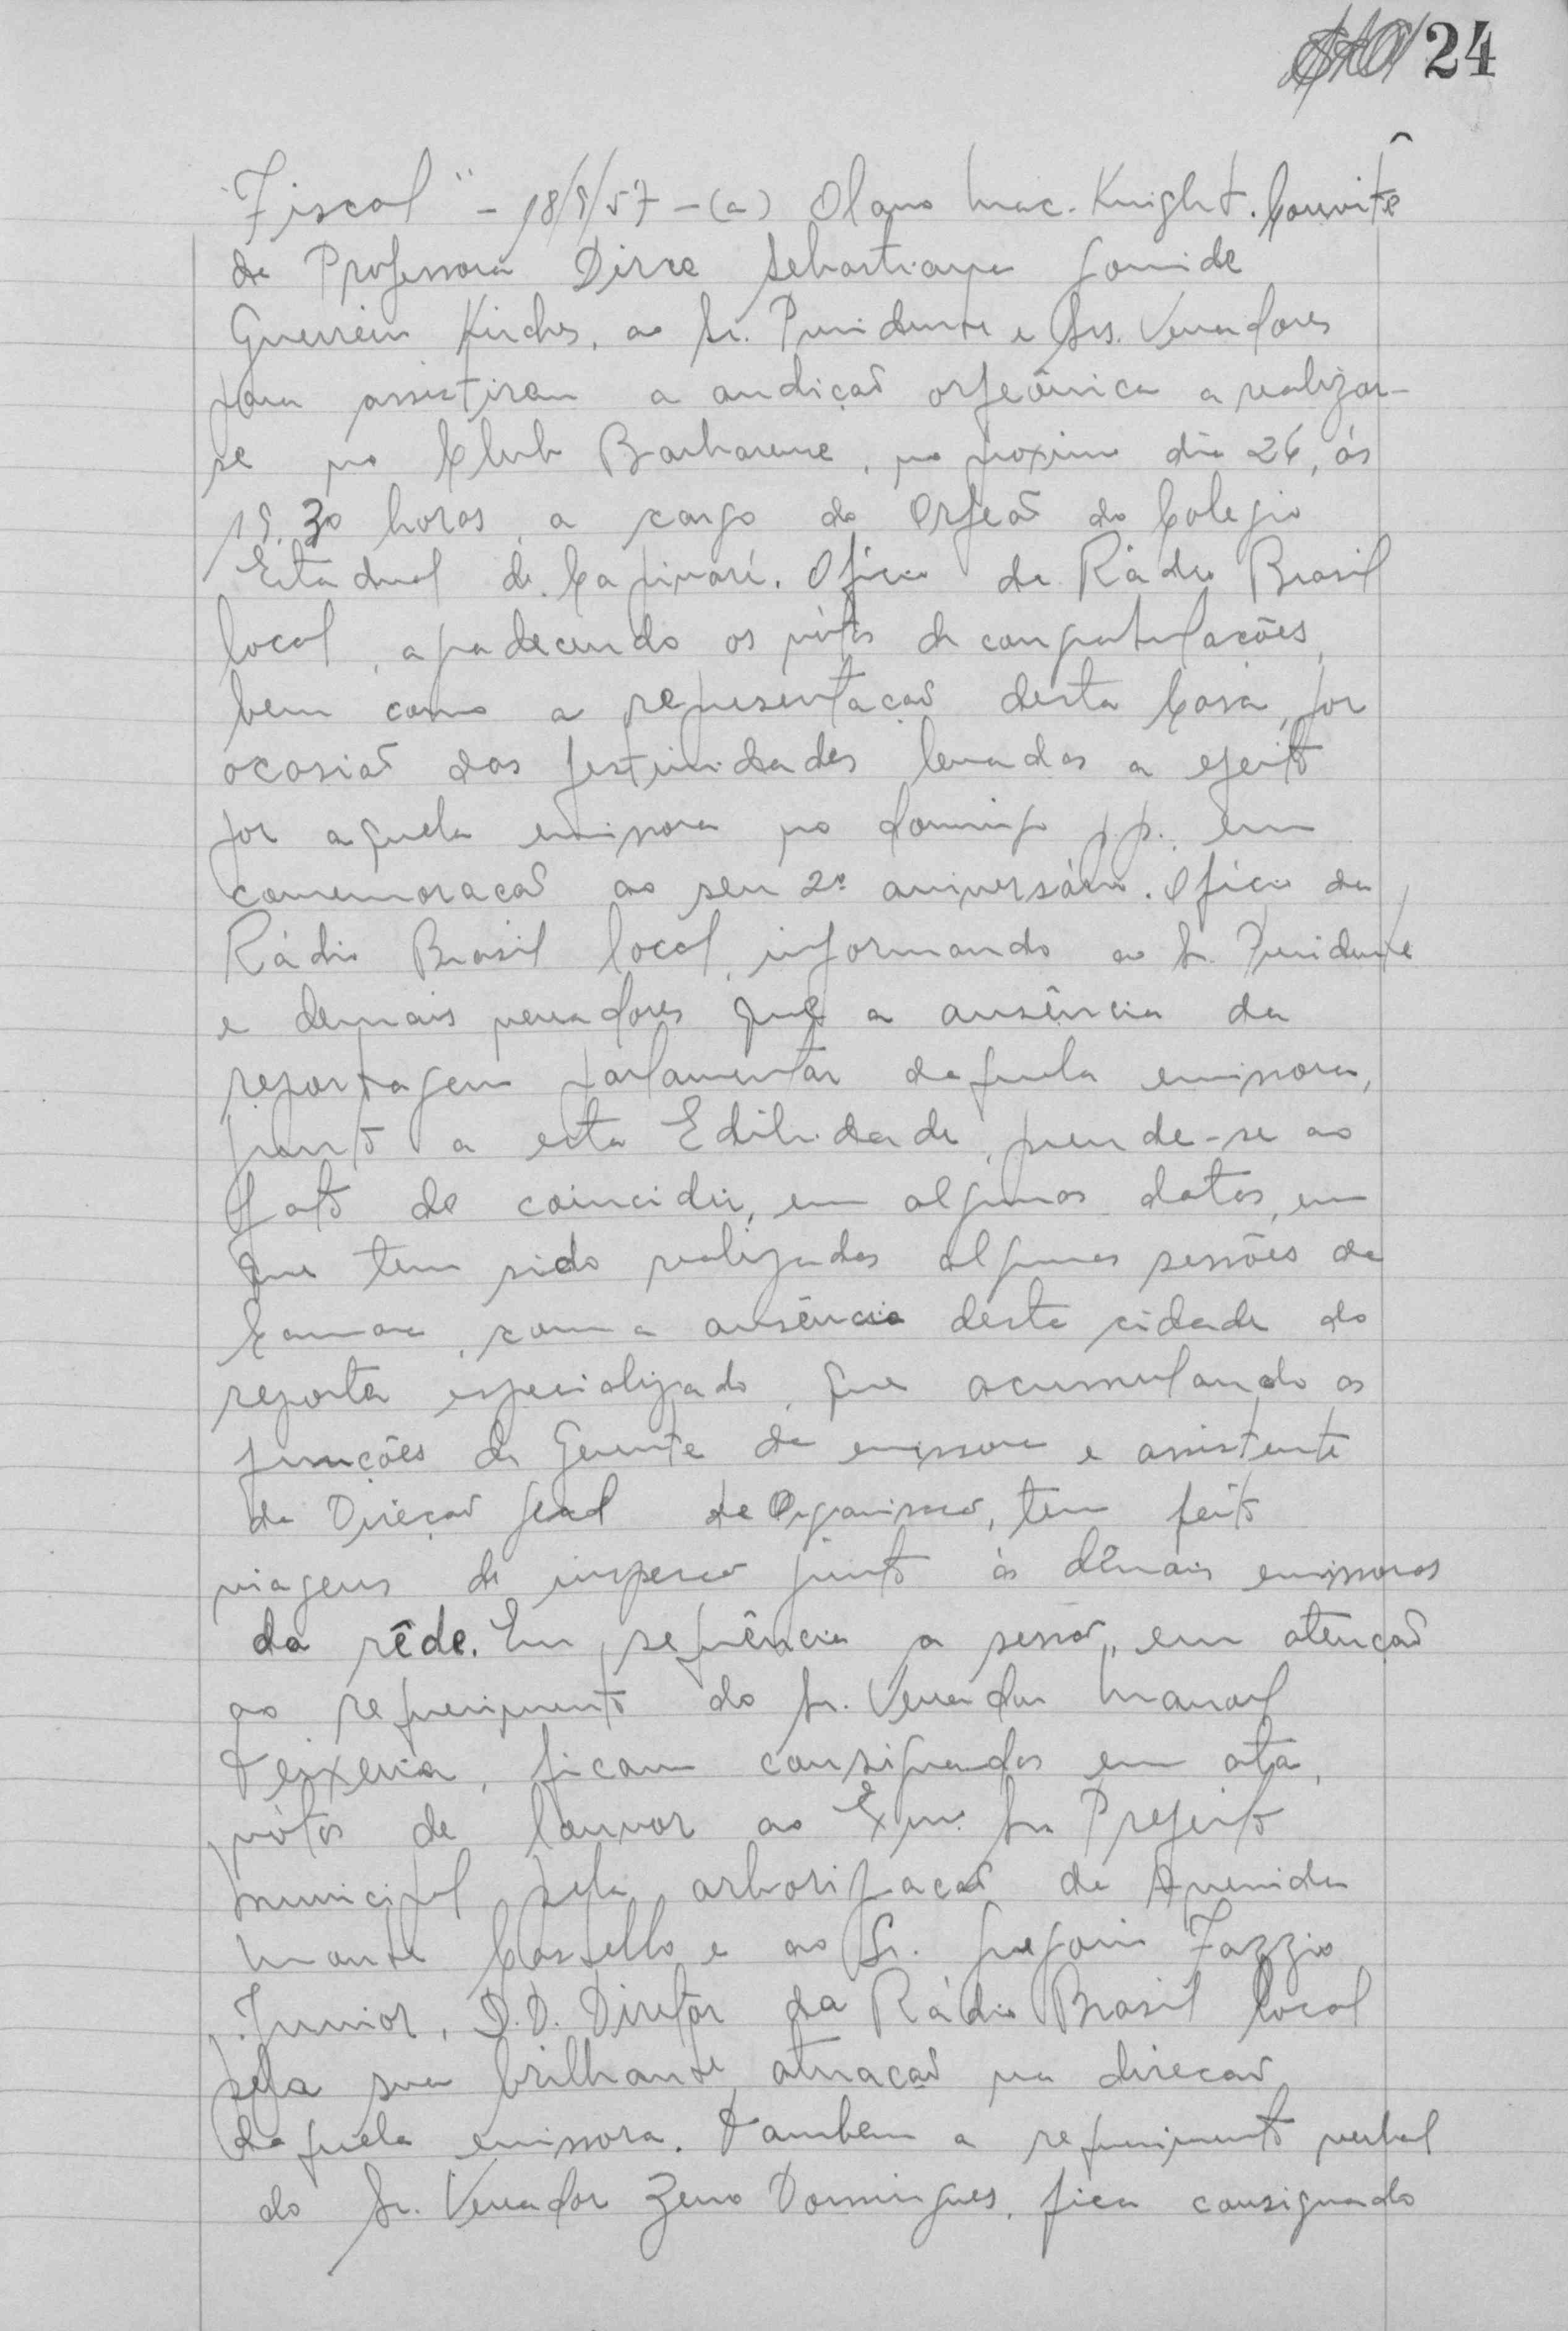 24
Fiscal" - 18/9/57 - (a) Olavo Mac-Knight. Convite
da Professora Dirce Sebastiana Gomide
Guerreiro Kirches, ao Sr. Presidente e Srs. Vereadores
para assistirem a audição orfeônica a realizar-
se no Club Barbarense, no proximo dia 26, ás
19,30 horas, a cargo do Orfeão do Colegio
Estadual de Capivarí. Oficio da Rádio Brasil
local, agradecendo os vótos de congratulações,
bem como a representação desta Casa, por
ocasião das festividades levadas a efeito
por aquela emissora no domingo p.p. em
comemoração ao seu 2º aniversário. Ofício da
Rádio Brasil local, informando ao Sr. Presidente
e demais vereadores que a ausência da
reportagem parlamentar daquela emissora,
junto a esta Edilidade, prende-se ao
fato de coincidir, em algumas datas, em
que tem sido realizadas algumas sessões da
Camara, com a ausência desta cidade do
reporter especializado, que acumulando as
funções de Gerente da emissora e assistente
da Direção Geral de Organisação, tem feito
viagens de inspeção junto ás dêmais emissoras
da rêde. Em sequência a sessão, em atenção
ao requerimento do Sr. Vereador Manoel
Teixeira, ficam consignados em ata,
vótos de louvor ao Exmo. Sr. Prefeito
Municipal pela arborização da Avenida
Monte Castello e ao Sr. Gregorio Fazzio
Junior, D.D. Diretor da Rádio Brasil local
pela sua brilhante atuação na direção
daquela emissora. Tambem a requerimento verbal
do Sr. Vereador Zeno Domingues, fica consignado